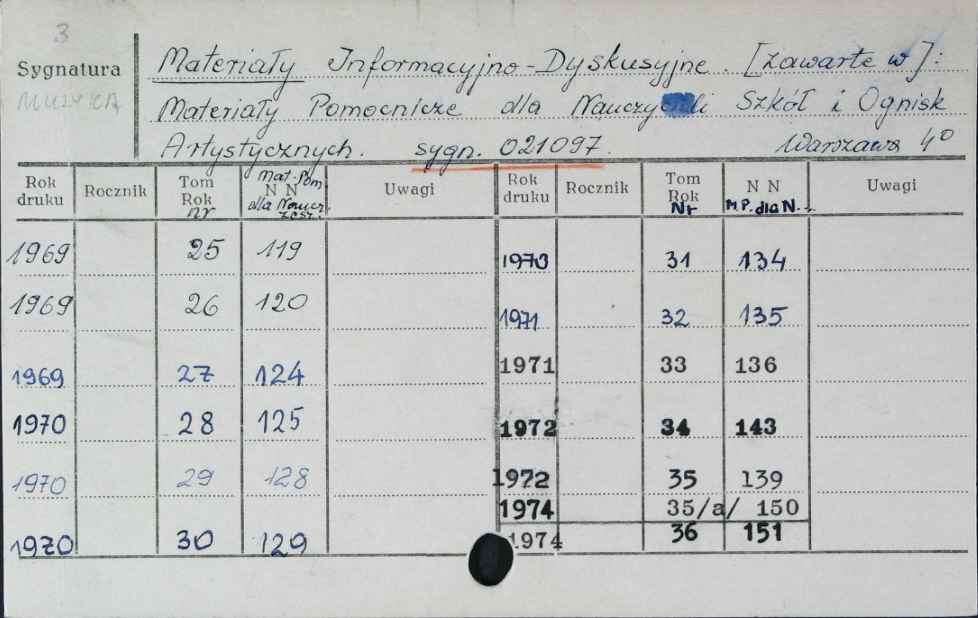 3
Sygnatura
MUZYKA
Materiały Informacyjno-Dyskusyjne. [zawarte w]:
Materiały Pomocnicze dla Nauczycieli Szkół i Ognisk
Artystycznych. sygn. 021097. Warszawa 4°
Rok druku Rocznik Tom Rok nr Mat. Pom. N N dla Naucz. zesz. Uwagi Rok druku Rocznik Tom Rok Nr N N M.P. dla N. Uwagi
1969 25 119 1970 31 134
1969 26 120 1971 32 135
1969 27 124 1971 33 136
1970 28 125 1972 34 143
1970 29 128 1972 35 139
1974 35/a/ 150
1970 30 129 1974 36 151